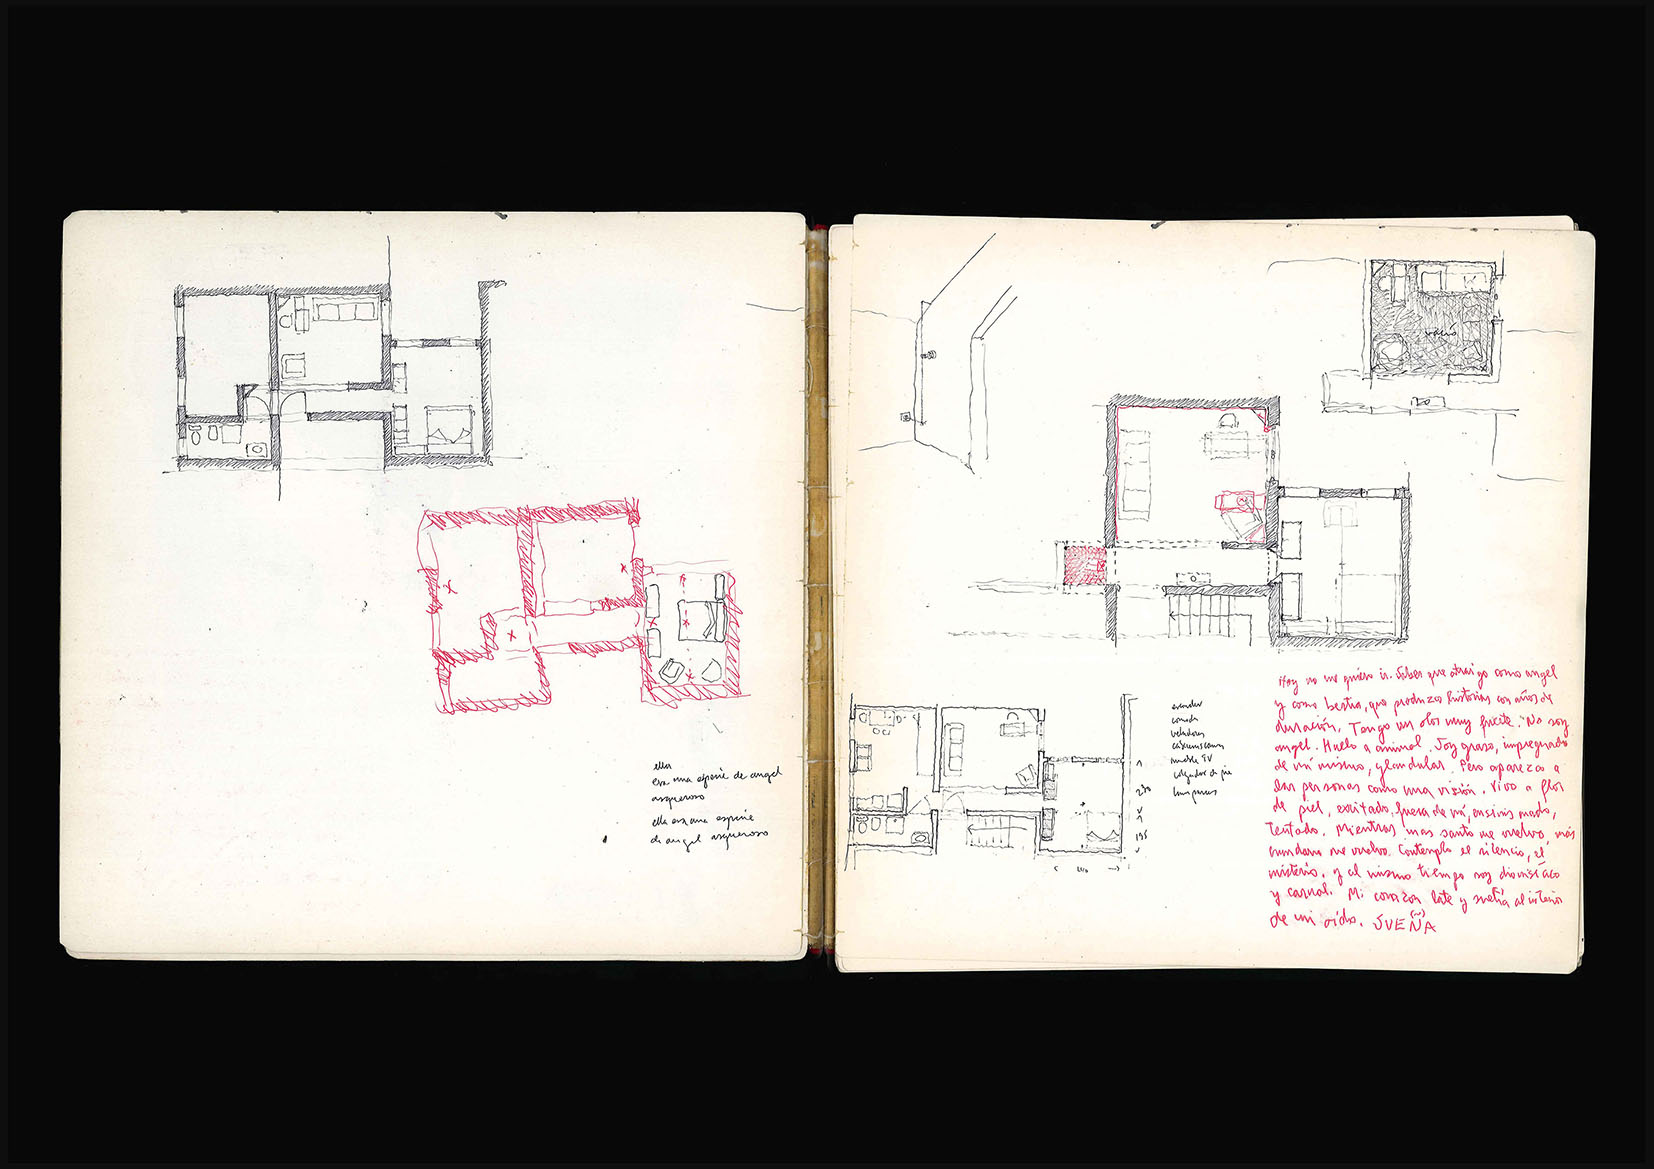 ella
era una especie de angel
asqueroso
ella era una especie
de angel asqueroso
vacío
comoda
veladores
mueble TV
colgador de pie
lamparas
230
195
Hoy no me quiero ir. Saber que atraigo como angel
y como bestia, que produzco historias con años de
duración. Tengo un olor muy fuerte. "No soy
angel. Huelo a animal. Soy graso, impregnado
de mí mismo, glandular. Pero aparezco a
las personas como una visión. Vivo a flor
de piel, excitado, fuera de mí, ensimismado,
tentado. Mientras mas santo me vuelvo, más
mundano me vuelvo. Contemplo el silencio, el
misterio. y al mismo tiempo soy dionisíaco
y carnal. Mi corazon late y sueña al interior
de mi oido. SUEÑA